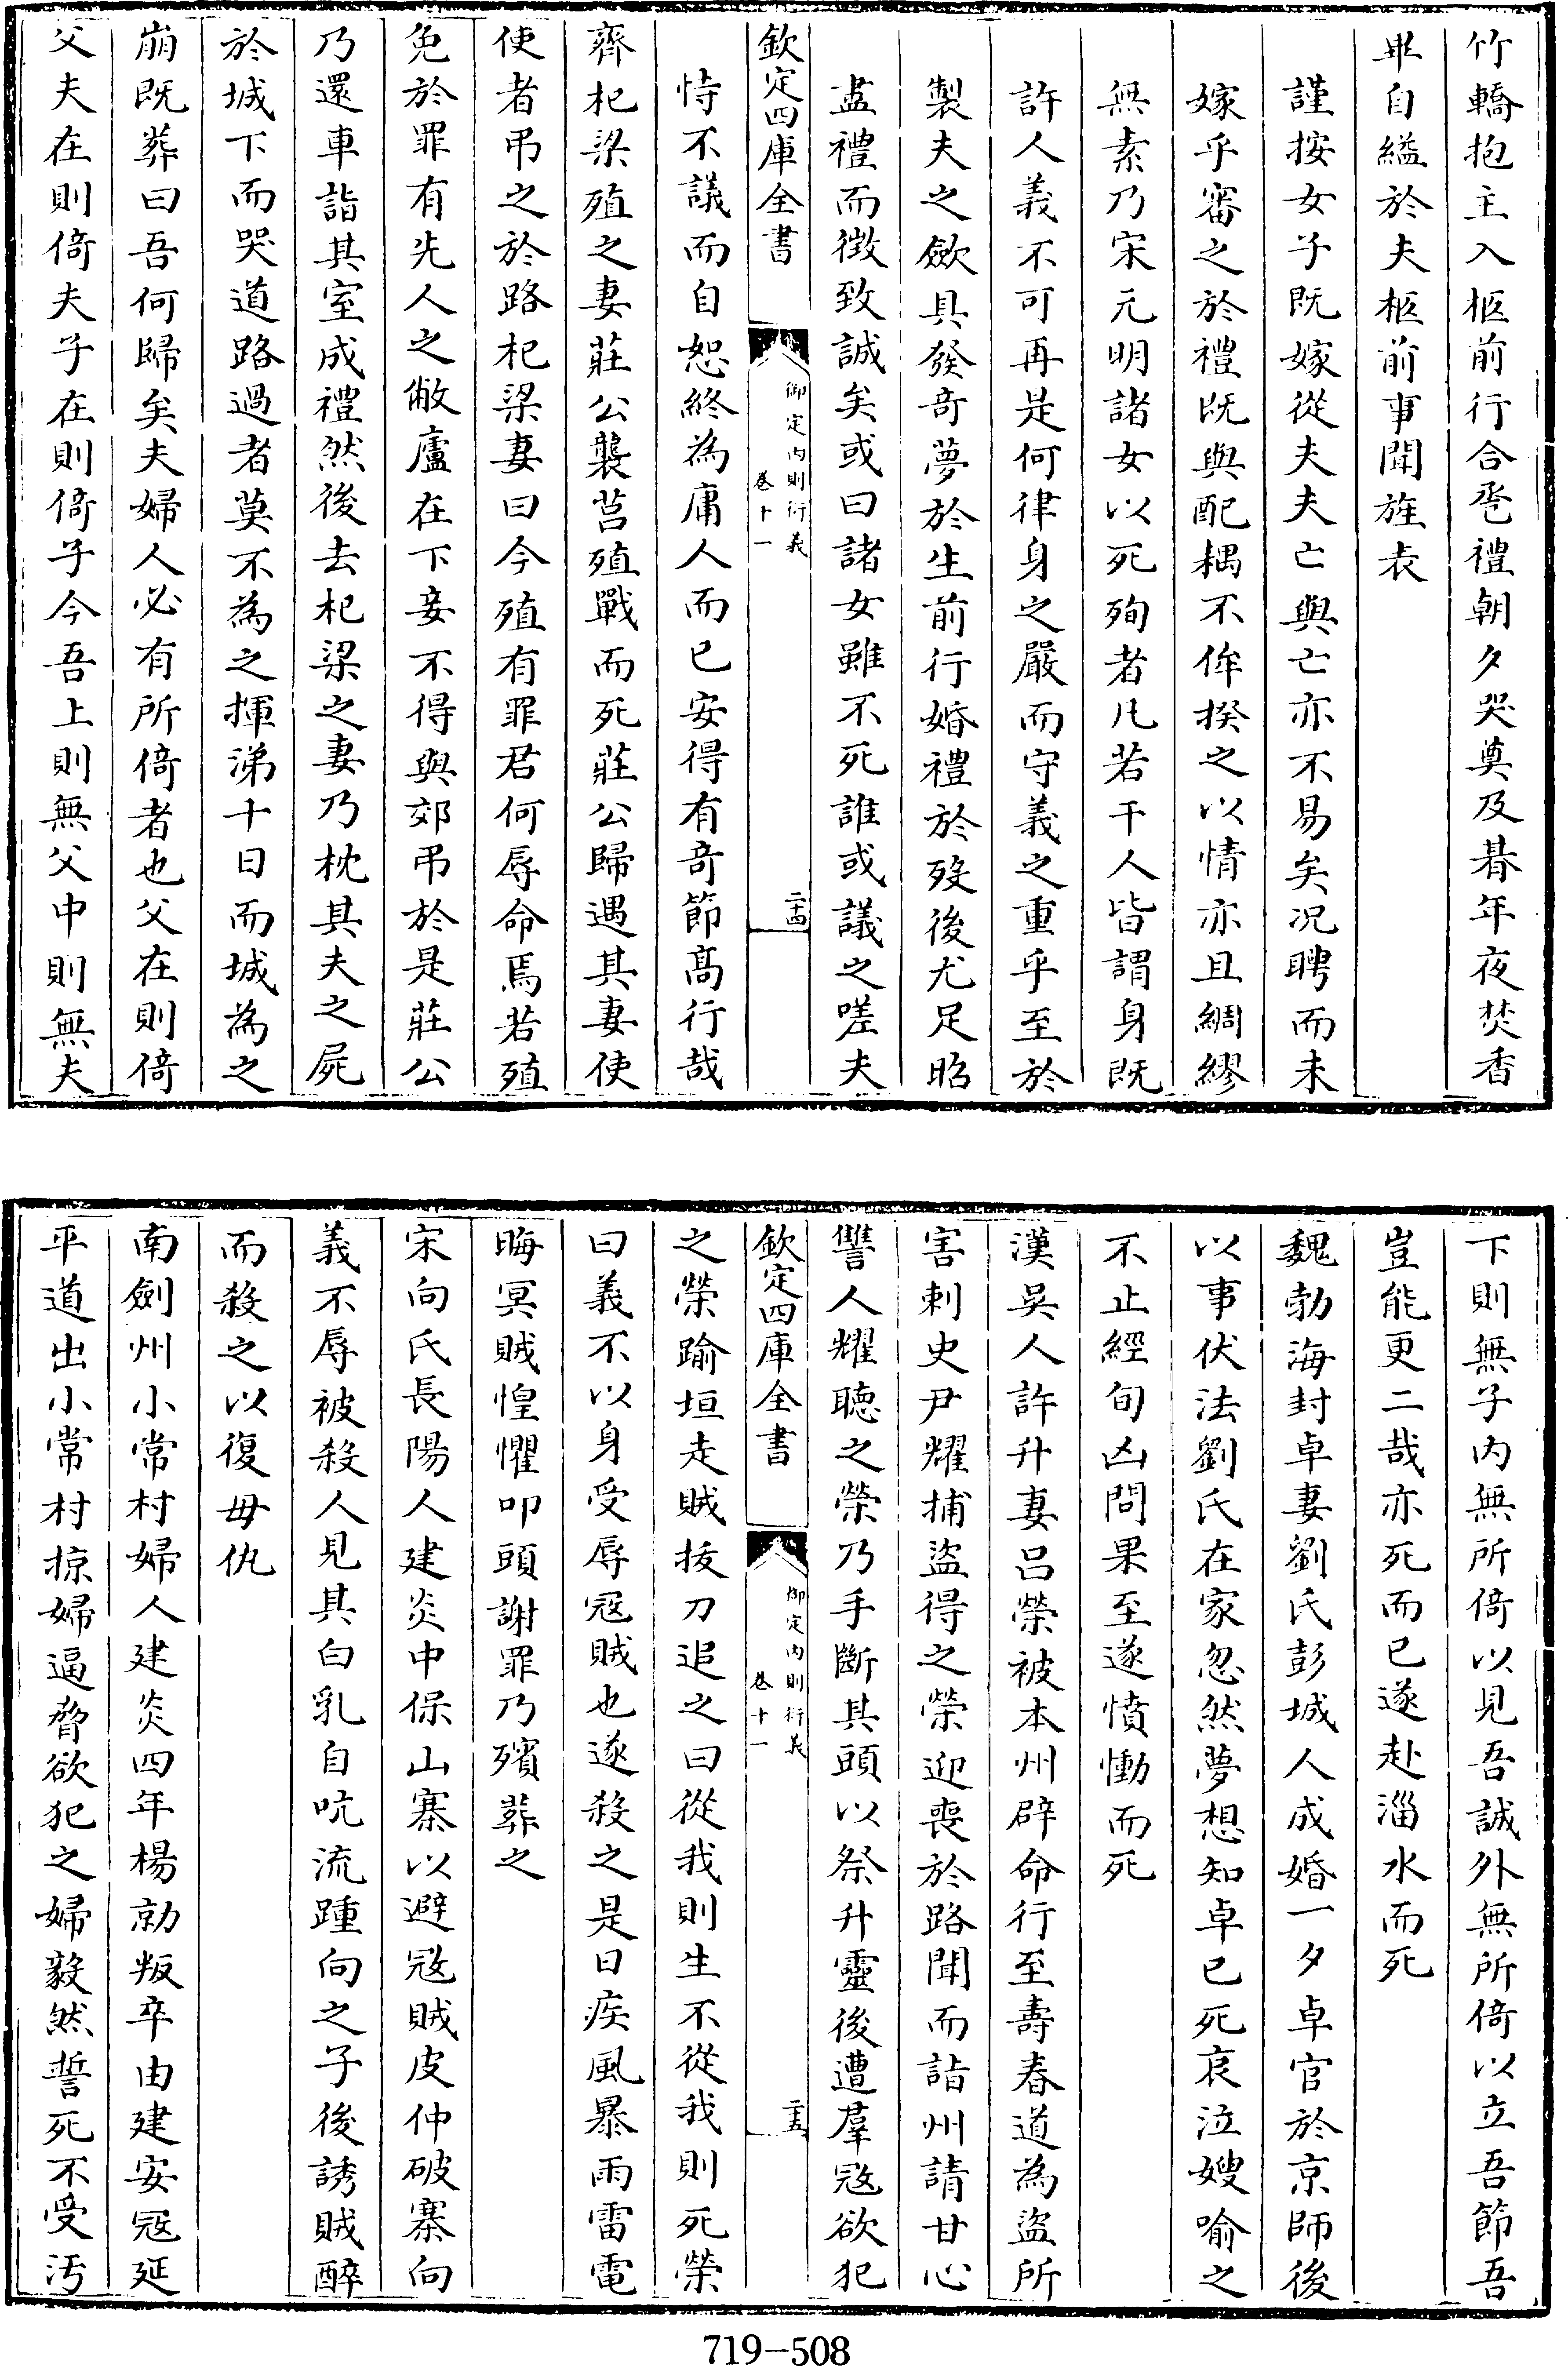 竹轎抱主入柩前行合巹禮朝夕哭奠及朞年夜焚香
畢自縊於夫柩前事聞旌表
謹按女子既嫁從夫夫亡與亡亦不易矣况聘而未
嫁乎審之於禮既與配耦不侔揆之以情亦且綢繆
無素乃宋元明諸女以死殉者凡若干人皆謂身既
許人義不可再是何律身之嚴而守義之重乎至於
製夫之歛具發竒夢於生前行婚禮於歿後尤足昭
盡禮而徴致誠矣或曰諸女雖不死誰或議之嗟夫
欽定四庫全書
御定内則衍義
卷十一
二十四
恃不議而自恕終為庸人而已安得有竒節髙行哉
齊杞梁殖之妻莊公襲莒殖戰而死莊公歸遇其妻使
使者弔之於路杞梁妻曰今殖有罪君何辱命焉若殖
免於罪有先人之敝廬在下妾不得與郊弔於是莊公
乃還車詣其室成禮然後去杞梁之妻乃枕其夫之屍
於城下而哭道路過者莫不為之揮涕十日而城為之
崩既葬曰吾何歸矣夫婦人必有所倚者也父在則倚
父夫在則倚夫子在則倚子今吾上則無父中則無夫
下則無子内無所倚以見吾誠外無所倚以立吾節吾
豈能更二哉亦死而已遂赴淄水而死
魏勃海封卓妻劉氏彭城人成婚一夕卓官於京師後
以事伏法劉氏在家忽然夢想知卓已死哀泣嫂喻之
不止經旬凶問果至遂憤慟而死
漢吳人許升妻吕榮被本州辟命行至壽春道為盜所
害刺史尹耀捕盜得之榮迎喪於路聞而詣州請甘心
讐人耀聴之榮乃手斷其頭以祭升靈後遭羣冦欲犯
欽定四庫全書
御定内則衍義
卷十一
二十五
之榮踰垣走賊拔刀追之曰從我則生不從我則死榮
曰義不以身受辱冦賊也遂殺之是日疾風暴雨雷電
晦冥賊惶懼叩頭謝罪乃殯葬之
宋向氏長陽人建炎中保山寨以避冦賊皮仲破寨向
義不辱被殺人見其白乳自吭流踵向之子後誘賊醉
而殺之以復母仇
南劍州小常村婦人建炎四年楊勍叛卒由建安冦延
平道出小常村掠婦逼脅欲犯之婦毅然誓死不受汚
719-508